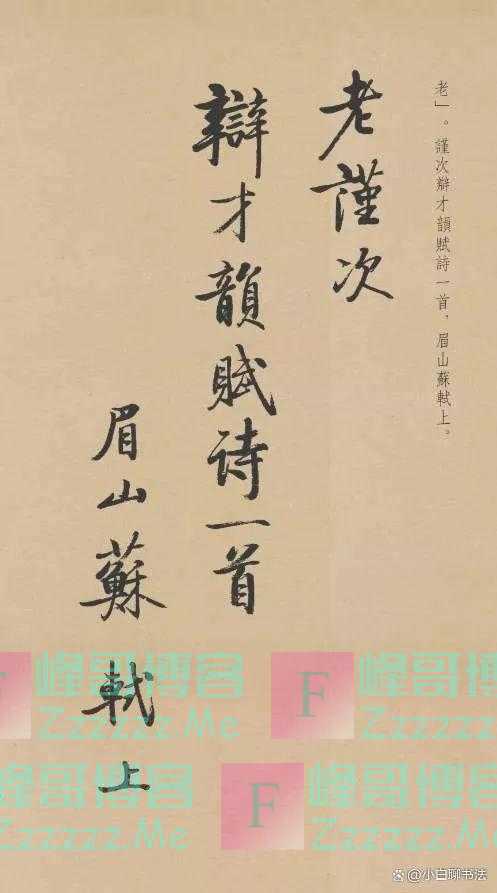 老」。謹次辯才韻賦詩一首,眉山蘇軾上。
老謹次
辯才韻賦诗一首
眉山蘇軾上
峰哥博客
Zzzzzz.Me
F
峰哥博客
Zzzzzz
峰哥博客
Zzzzz.Me
F
峰哥博客
Zzzzzz.Me
@小白聊书法